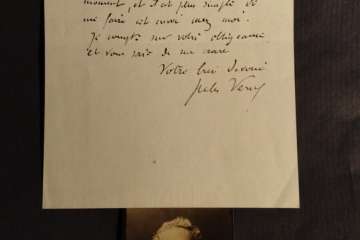 moment, et il est plus simple de
me faire cet envoi chez moi.
Je compte sur votre obligeance
et vous prie de me croire
Votre bien dévoué
Jules Verne